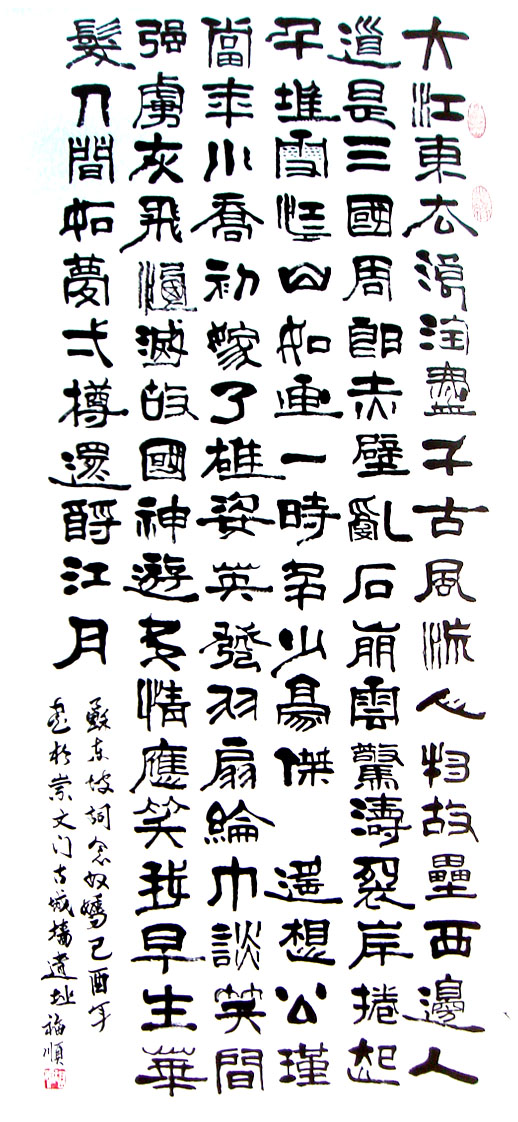 大江東去浪淘盡千古風流人物故壘西邊人
道是三國周郎赤壁亂石崩雲驚濤裂岸捲起
千堆雪江山如画一時多少豪傑 遥想公瑾
當年小喬初嫁了雄姿英發羽扇綸巾談笑間
强虜灰飛湮滅故國神遊多情應笑我早生華
髮人間如夢弌樽還酹江月
蘇东坡词念奴嬌己酉年
書於崇文门古城墙遺址福順